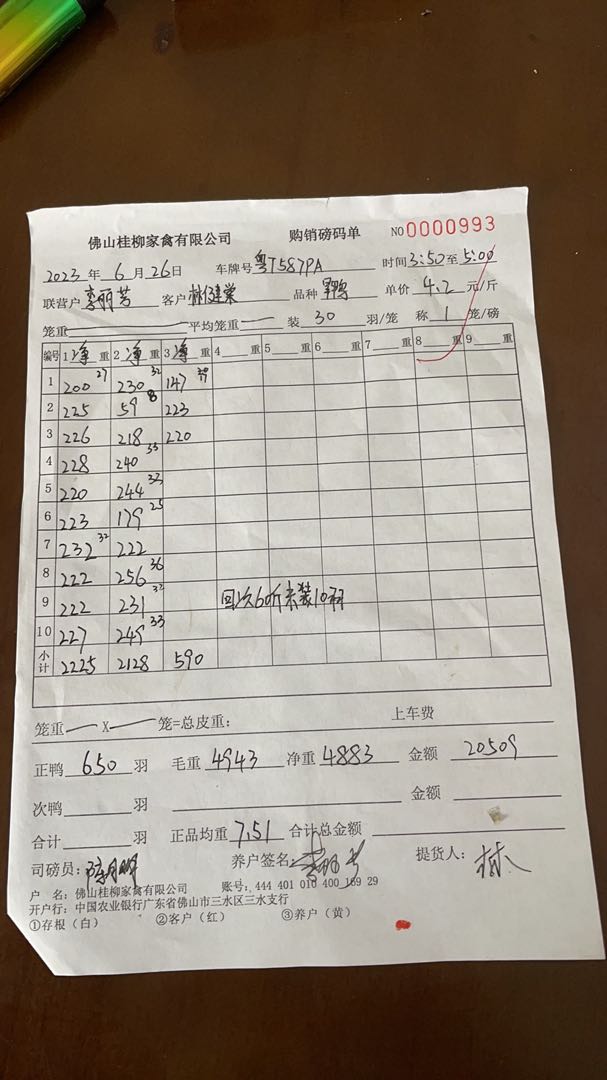 佛山桂柳家禽有限公司 购销磅码单 NO 0000993
2023 年 6 月 26 日 车牌号 粤T587PA 时间 3:50 至 5:00
联营户 李丽芳 客户 林健棠 品种 单价 4.2 元/斤
笼重 平均笼重 装 30 羽/笼 称 1 笼/磅
编号 1 净 重 2 净 重 3 净 重 4 重 5 重 6 重 7 重 8 重 9 重
1 200 27 230 32 147
2 225 59 8 223
3 226 218 220
4 228 240 33
5 220 244 33
6 223 179 25
7 232 32 222
8 222 256 36
9 222 231 32 60斤 装10羽
10 227 249 33
小计 2225 2128 590
笼重 X 笼=总皮重: 上车费
正鸭 650 羽 毛重 4943 净重 4883 金额 20509
次鸭 羽 金额
合计 羽 正品均重 7.51 合计总金额
司磅员: 养户签名: 提货人:
户 名: 佛山桂柳家禽有限公司 账号: 444 401 010 400 169 29
开户行: 中国农业银行广东省佛山市三水区三水支行
①存根(白) ②客户(红) ③养户(黄)